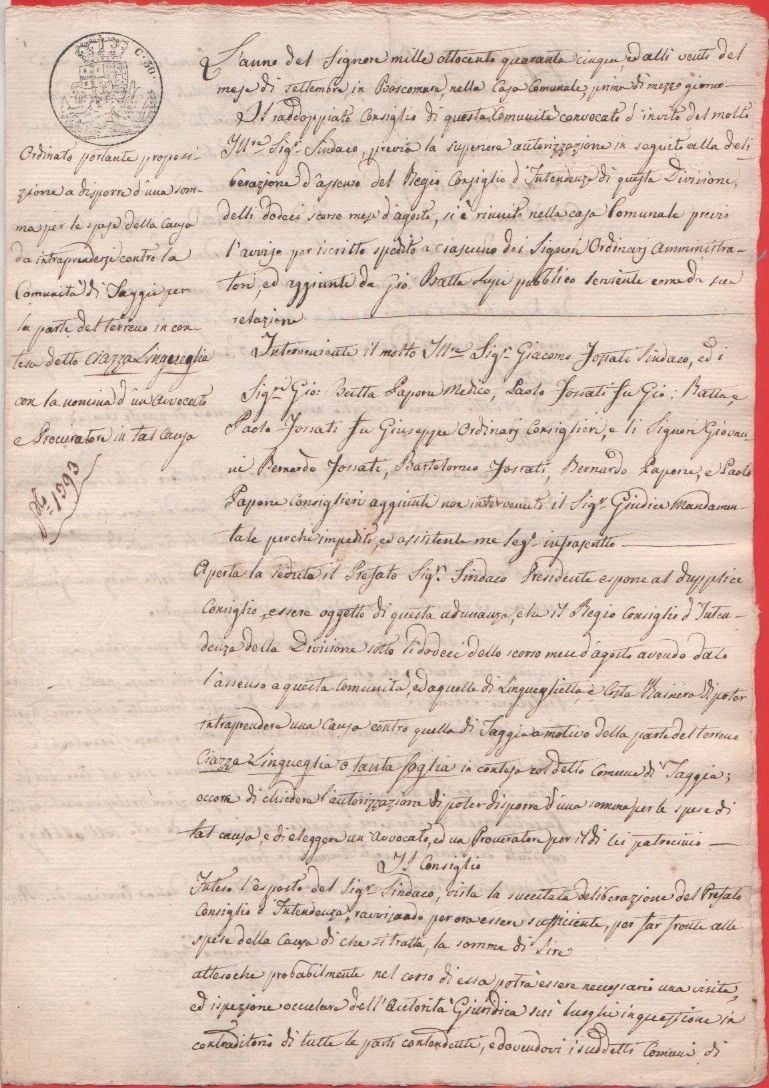 C. 50.
L'anno del Signore mille ottocento quaranta cinque, ed alli venti del
mese di settembre in Boscomare nella Casa Comunale, prima di mezzo giorno
Il raddoppiato Consiglio di questa Comunità convocato d'invito del molto
Ill.re Sig.r Sindaco, previa la superiore autorizzazione in seguito alla deli
berazione d'assenso del Regio Consiglio d'Intendenza di questa Divisione,
delli dodeci scorso mese d'agosto, si è riunito nella casa Comunale previo
l'avviso per iscritto spedito a ciascuno dei Signori Ordinarj Amministra-
tori, ed aggiunti da Gio. Batta Lupi pubblico serviente come da sua
relazione
Interveniente il molto Ill.re Sig.r Giacomo Fossati Sindaco, ed i
Sig.ri Gio: Batta Papone Medico, Paolo Fossati fu Gio: Batta e
Paolo Fossati fu Giuseppe Ordinarj Consiglieri, e li Signori Giovan
ni Bernardo Fossati, Bartolomeo Fossati, Bernardo Papone, e Paolo
Papone Consiglieri aggiunti non intervenuto il Sig.r Giudice Mandamen-
tale perchè impedito, ed assistente me Seg.o infrascritto
Aperta la seduta il Prefato Sig.r Sindaco Presidente espone al dupplice
Consiglio, essere oggetto di questa adunanza, che il Regio Consiglio d'Inten-
denza della Divisione sotto li dodeci dello scorso mese d'agosto avendo dato
l'assenso a questa Comunità, ed a quelle di Lingueglietta, e Costa Rainera di poter
intraprendere una Causa contro quella di Taggia a motivo della parte del terreno
Ciazza Lingueglia o tanta foglia in contesa col detto Comune di Taggia;
occorre di chiedere l'autorizzazione di poter disporre d'una somma per le spese di
tal causa, e di eleggere un avvocato, ed un Procuratore per il di lei patrocinio
Il Consiglio
Inteso l'esposto del Sig.r Sindaco, vista la succitata deliberazione del Prefato
Consiglio d'Intendenza, ravvisando per ora essere sufficiente, per far fronte alle
spese della Causa di che si tratta, la somma di lire
attesoche probabilmente nel corso di essa potrà essere necessario una visita,
ed ispezione occulare dell'Autorità Giuridica sui luoghi in questione in
contraditorio di tutte le parti contendenti, e dovendovi i suddetti Comuni di
Ordinato portante proposi-
zione a disporre d'una som-
ma per le spese della Causa
da intraprendersi contro la
Comunità di Taggia per
la parte del terreno in con
tesa detto Ciazza Lingueglia
con la nomina d'un avvocato
e Procuratore in tal Causa
1593